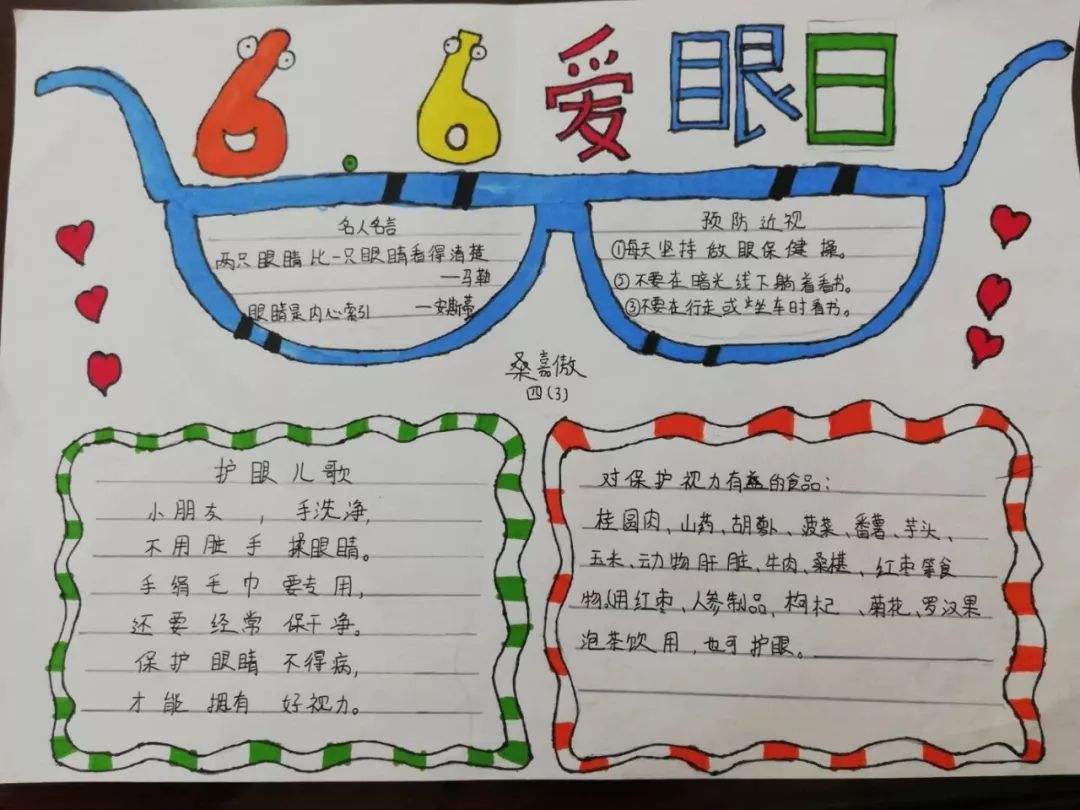 6.6爱眼日
名人名言
两只眼睛比一只眼睛看得清楚
——马勒
眼睛是内心索引 ——安斯蒂
预防近视
①每天坚持做眼保健操。
②不要在暗光线下躺着看书。
③不要在行走或坐车时看书。
桑嘉傲
四(3)
护眼儿歌
小朋友,手洗净,
不用脏手揉眼睛。
手绢毛巾要专用,
还要经常保干净。
保护眼睛不得病,
才能拥有好视力。
对保护视力有益的食品:
桂园肉、山药、胡萝卜、菠菜、番薯、芋头、
玉米、动物肝脏、牛肉、桑椹、红枣等食
物,用红枣、人参制品、枸杞、菊花、罗汉果
泡茶饮用,也可护眼。